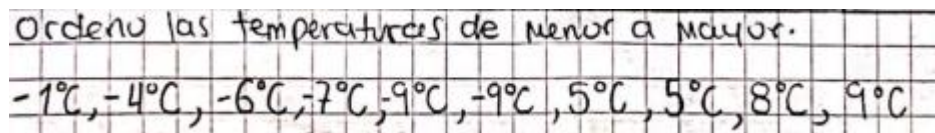 Ordeno las temperaturas de menor a mayor.
-1°C, -4°C, -6°C, -7°C, -9°C, -9°C, 5°C, 5°C, 8°C, 9°C